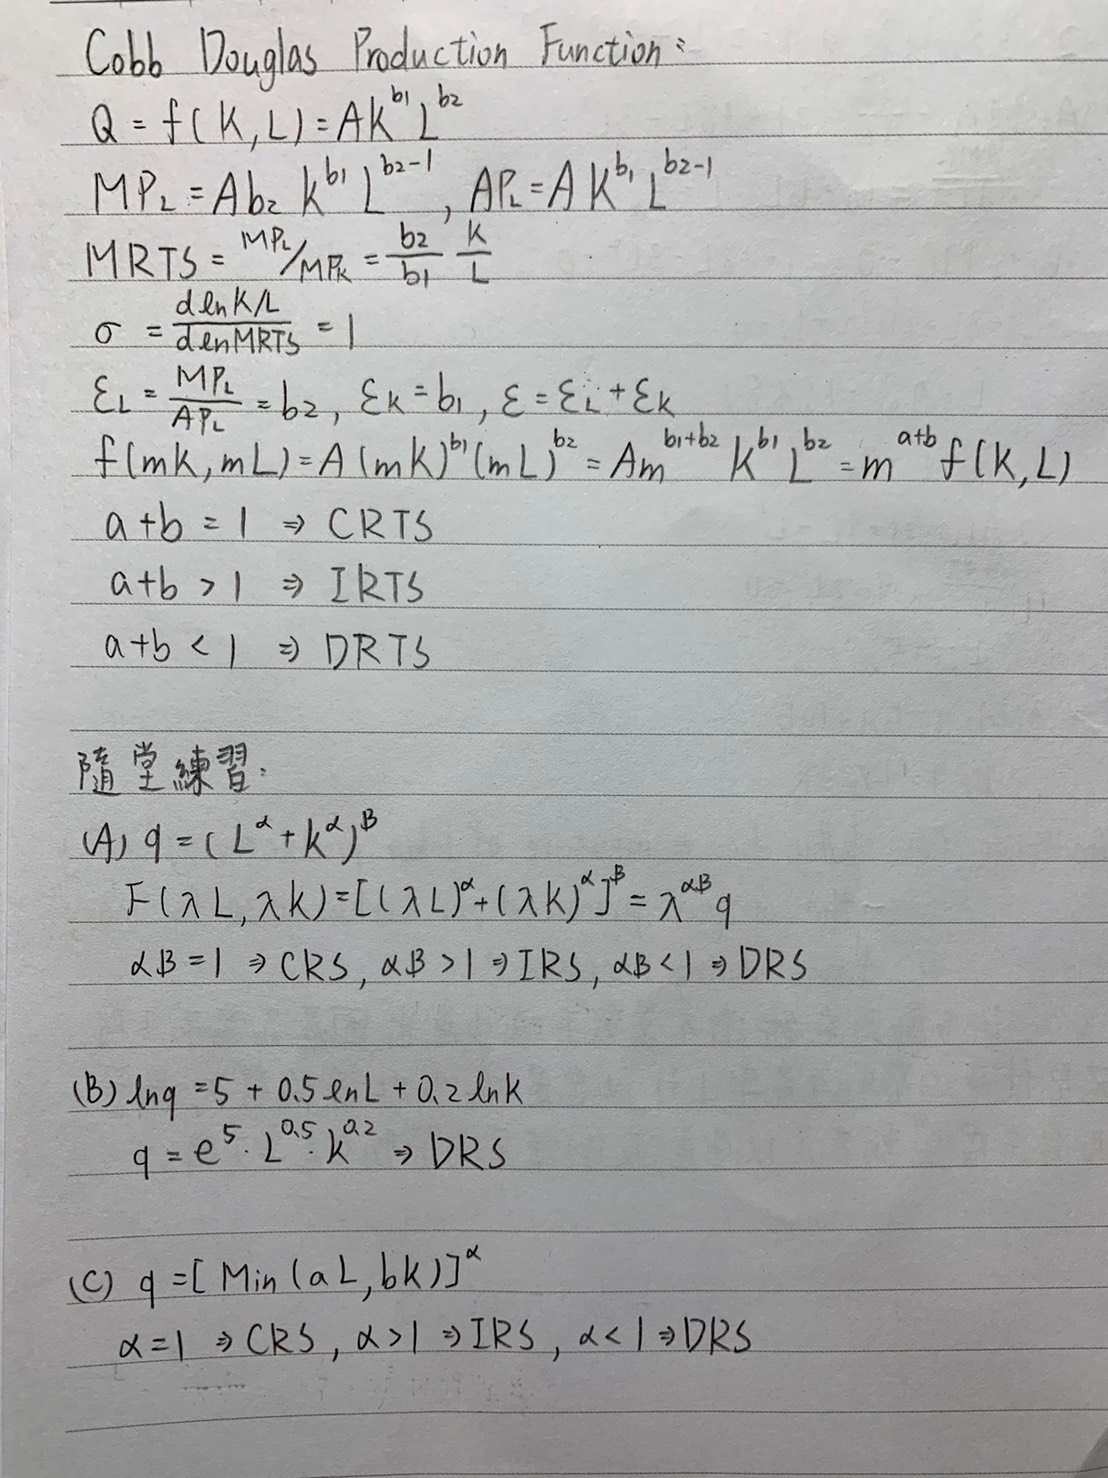 Cobb Douglas Production Function:
Q = f(K, L) = AK^b1 L^b2
MP_L = Ab2 K^b1 L^b2-1, AP_L = AK^b1 L^b2-1
MRTS = MP_L/MP_K = b2/b1 K/L
σ = dlnK/L / dlnMRTS = 1
ε_L = MP_L/AP_L = b2, ε_K = b1, ε = ε_L + ε_K
f(mK, mL) = A(mK)^b1 (mL)^b2 = Am^b1+b2 K^b1 L^b2 = m^a+b f(K, L)
a+b = 1 ⇒ CRTS
a+b > 1 ⇒ IRTS
a+b < 1 ⇒ DRTS
隨堂練習:
(A) q = (L^α + K^α)^β
F(λL, λK) = [(λL)^α + (λK)^α]^β = λ^αβ q
αβ = 1 ⇒ CRS, αβ > 1 ⇒ IRS, αβ < 1 ⇒ DRS
(B) lnq = 5 + 0.5 lnL + 0.2 lnK
q = e^5 · L^0.5 · K^0.2 ⇒ DRS
(C) q = [Min(aL, bK)]^α
α = 1 ⇒ CRS, α > 1 ⇒ IRS, α < 1 ⇒ DRS